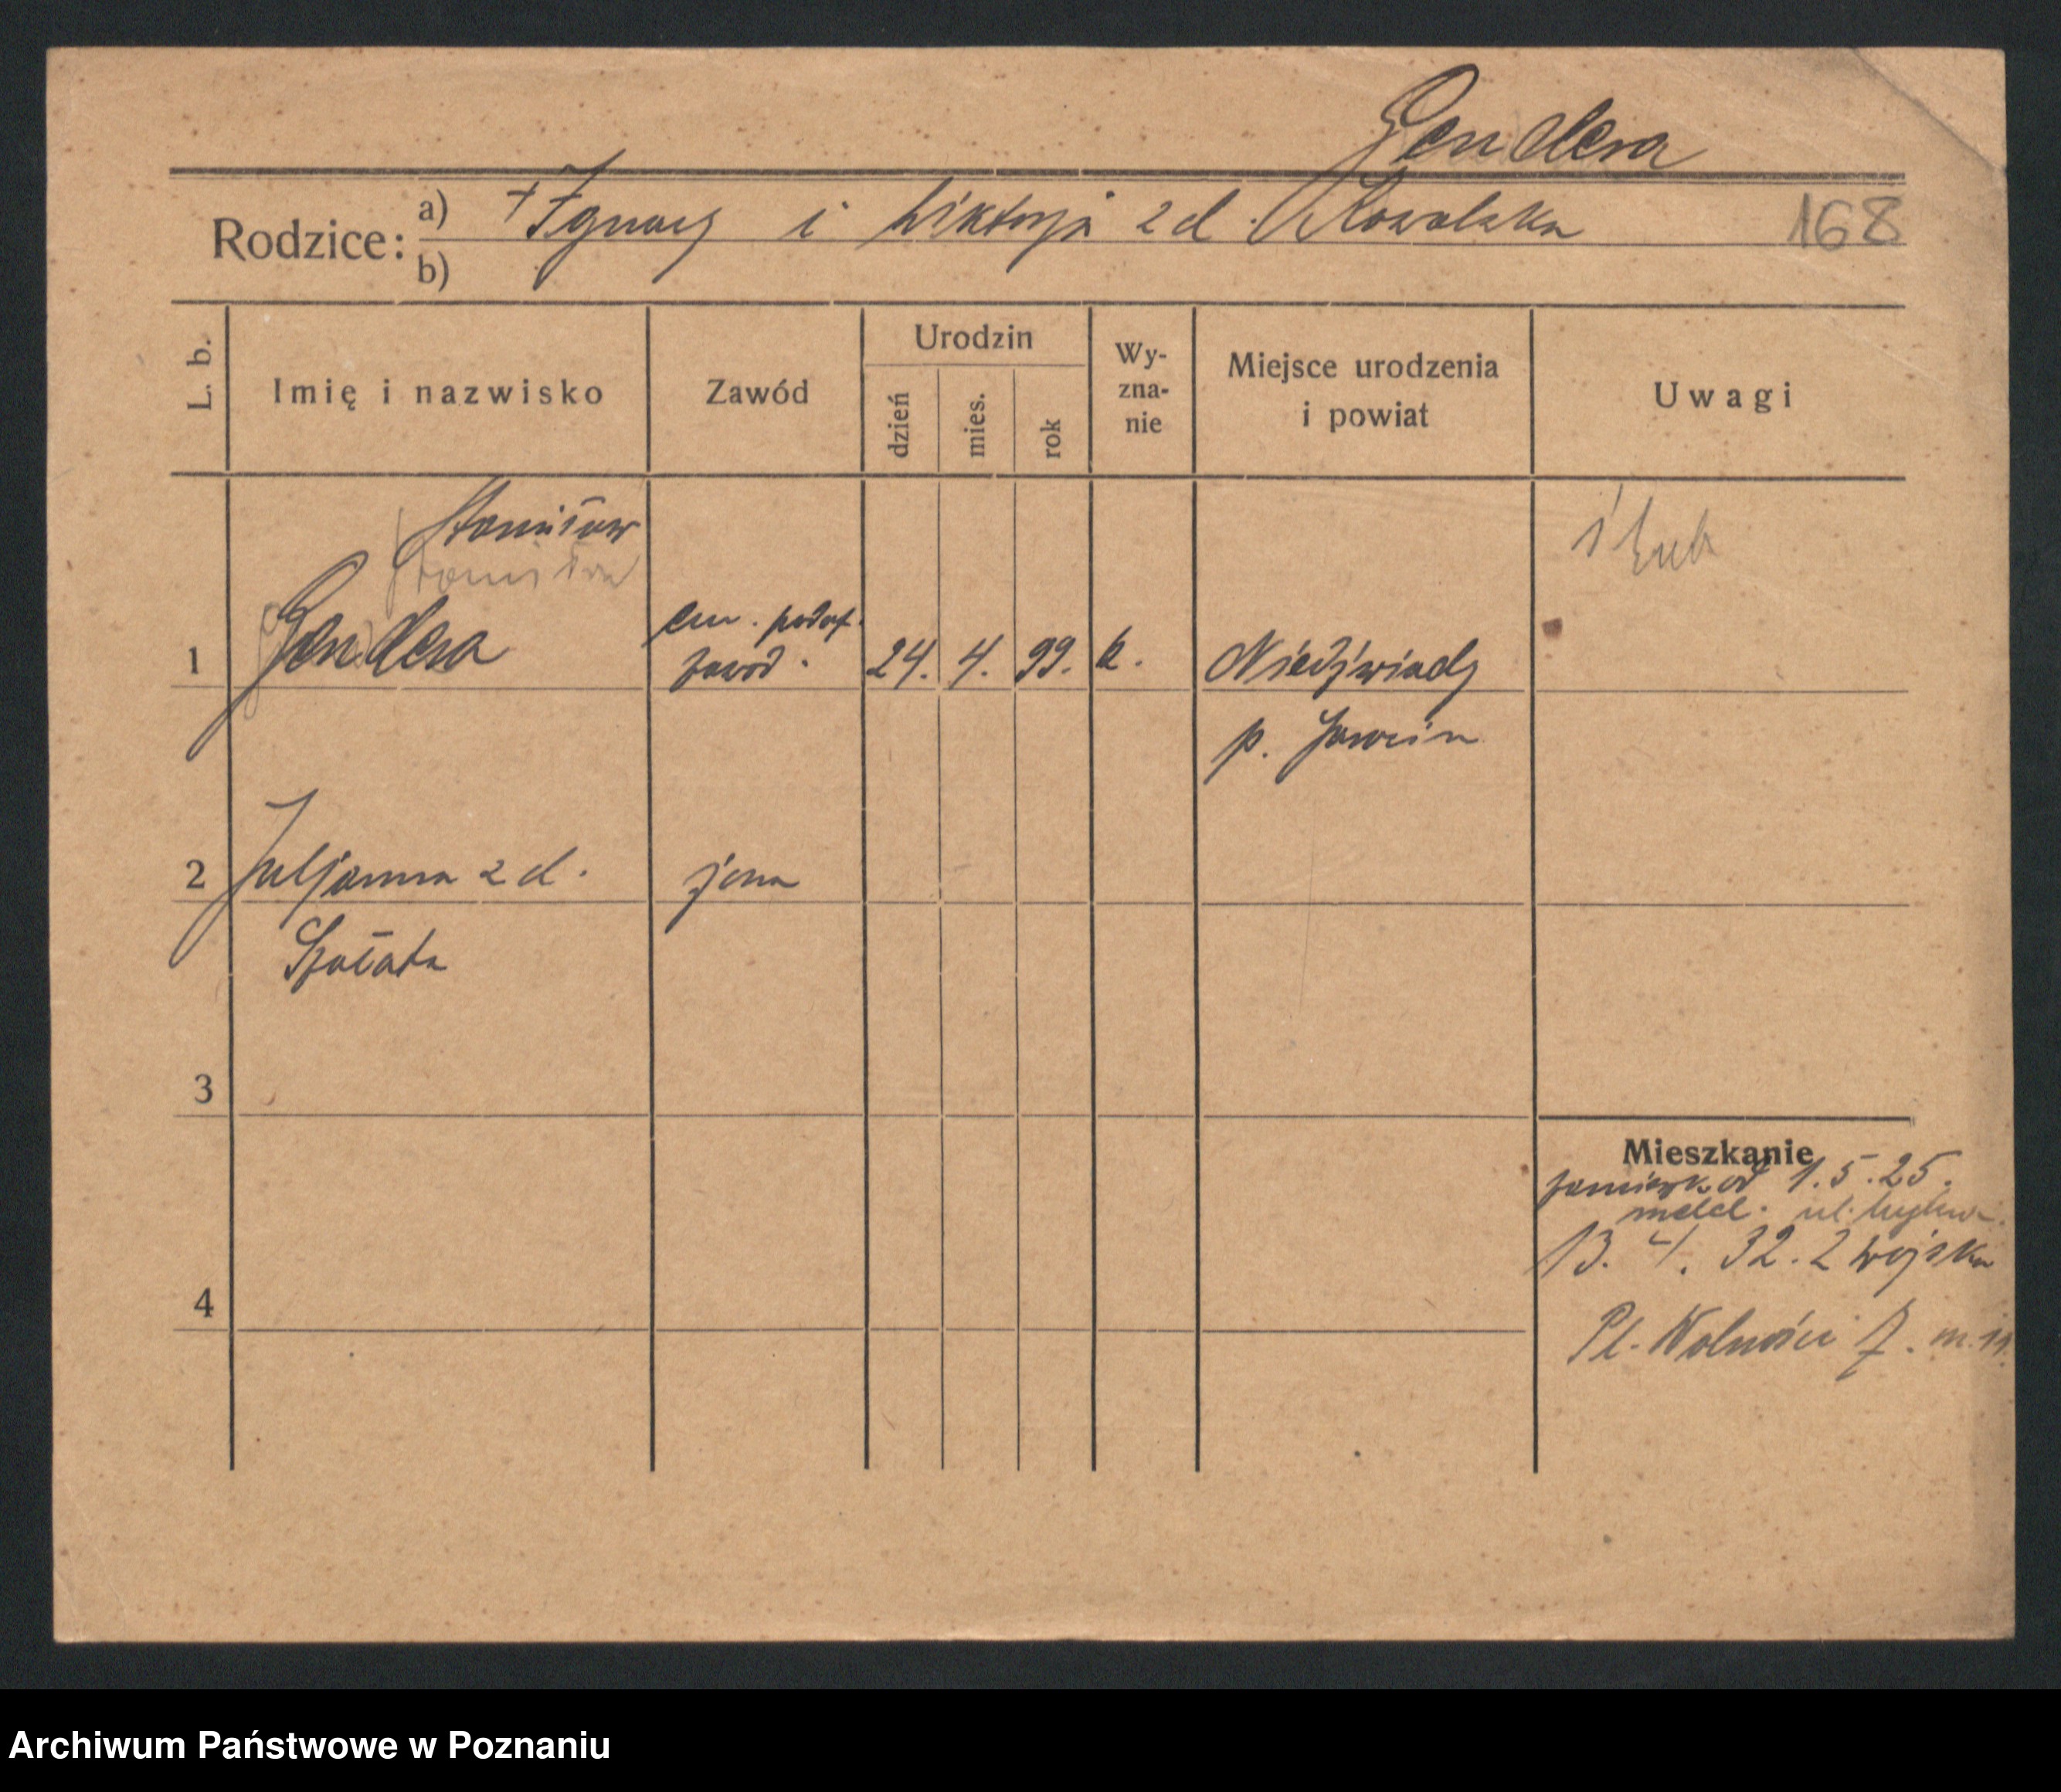 Gendera
Rodzice: a) + Ignacy i Wiktorja z d. Kowalska 168
b)
L. b. Imię i nazwisko Zawód Urodzin dzień mies. rok Wy-zna-nie Miejsce urodzenia i powiat Uwagi
Stanisław
Stanisław
1 Gendera em. podof. zawod. 24. 4. 99. k. Niedźwiady
ślub
p. Żnin
2 Juljanna z d. żona
Szałata
3
Mieszkanie
zamieszk. od 1.5.25.
meld. ul.
13. 4. 32. z wojska
4
Pl. Wolności 7. m.
Archiwum Państwowe w Poznaniu